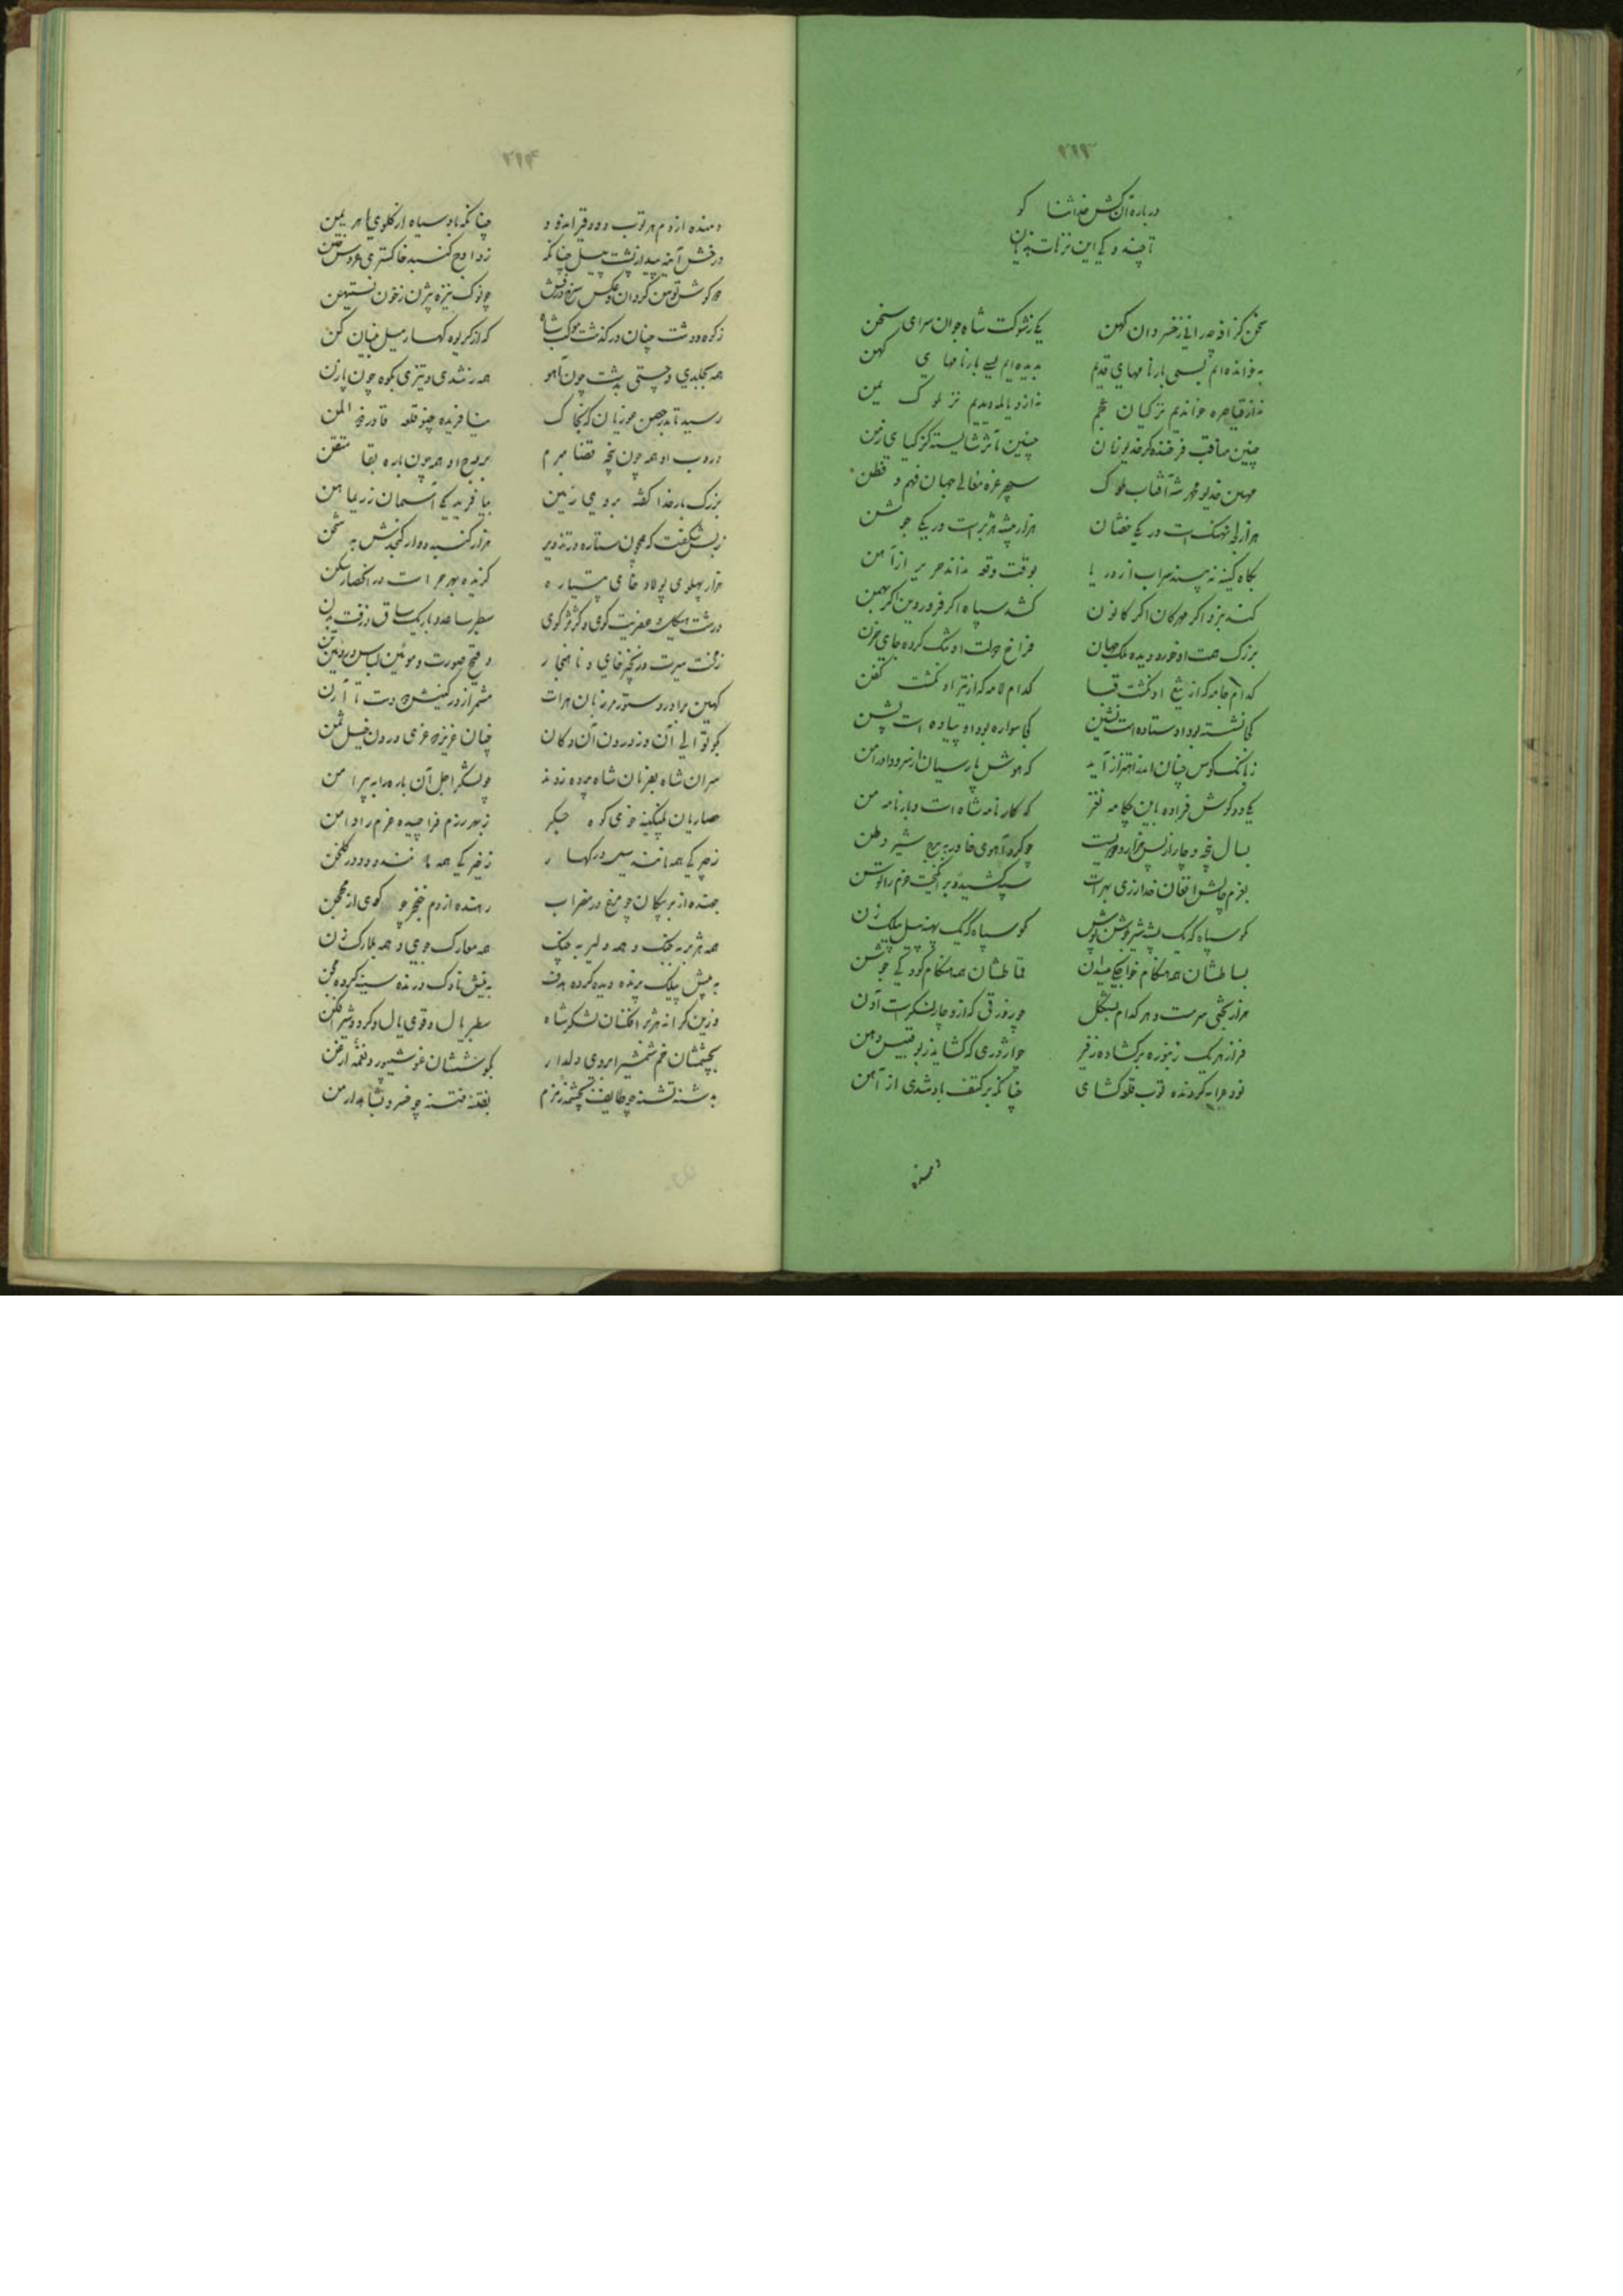 ۲۲۳
درباره آن کش خدا ثنا کو
تا چند و کی این ترهات
سخن گزافه چه رانی ز خسروان کهن یکی ز شوکت شاه جوان سرای سخن
بخوانده‌ایم بسی بارنامهای قدیم بدیده‌ایم بسی بارنامهای کهن
نه از قیاصره خواندیم نز کیان عجم نه از دیالمه دیدیم نز ملوک یمن
چنین مناقب فرخنده کز خدیو زمان چنین مآثر شایسته کز کیای زمن
مهین خدیو محمد شه آفتاب ملوک سپهر عز و معالی جهان فهم و فطن
هزار نهنگ است در یکی خفتان هزار بیشه هژبر است در یکی جوشن
بگاه کینه نه‌بیند سراب از دریا بوقت وقعه نداند حریر از آهن
کند نبرد اگر مهرگان اگر کانون کشد سپاه اگر فرودین اگر بهمن
بزرگ همت او خورد دیده ملک جهان فراخ دولت او تنگ کرده جای
کدام جامه که از تیغ او نگشت قبا کدام لامه که از تیر او نگشت کفن
کجا نشسته بود او ستاده است کجا سواره بود او پیاده است پشن
ز بانگ کوس چنان اندر اهتزاز آید که هوش پارسیان از سرود اورامن
یکی دو گوش فرا ده باین چکامه نغز که کارنامه شاه است و بارنامه من
بسال پنجه و چار از پس هزار و دویست چو کرد آهوی خاور به برج شیر وطن
بعزم چالش افغان خدا ز ری بهرات سپه کشید و برانگیخت عزم را توسن
بساطشان همه هنگام خوابگه میدان قماطشان همه هنگام کودکی جوشن
هزار بختی سرمست و هر کدام بشکل چو زورقی که از او چار لنگرست آون
فراز هر یک زنبوره برگشاده زفر چو اژدری که گشاید ز بهر بلع دهن
نود عرابه گردنده توپ قلعه‌گشای چنانکه بر کتف باد شدی از آهن
دمنده
۲۲۴
دمنده از دم هر توپ دود قیراندود چنانکه باد سیاه از گلوی اهریمن
درخش آینه پیدا ز پشت پیل چنانکه ز اوج گنبد خاکستری عروس ختن
دو گوش توسن گردان و عکس سرخ درفش چو نوک نیزه بیژن ز خون نستیهن
ز کوه و دشت چنان درگذشت موکب شاه که از کریوه کهسار سیل بنیان‌کن
همه بجلدی و چستی بدشت چون آهو همه بتندی و تیزی بکوه چون پازن
رسید تا بدر حصن غوریان که بخاک نیافریده چنو قلعه قادر ذوالمن
دروب او همه چون پنجه قضا مبرم بروج او همه چون باره بقا متقن
بزرگ بارخدا گفتی بروی زمین بیافرید یکی آسمان ز ریماهن
ز بس شگفت که همچون ستاره در تدویر هزار گنبد دوار گنجدش به شخن
هزار پهلوی پولاد خای پتیاره گزیده بهر حراست در آن حصار سکن
درشت‌هیکل و عفریت‌خوی و کژمژگوی سطبر ساعد و باریک ساق و زفت بدن
ز مخت سیرت و زنخ خای و ناهنجار وقیح صورت و موئین لباس و رویین تن
کهین برادر دستور مرزبان هرات مشمر از در کینش دو دست تا آرن
بکوتوالی آن دز درون آن دز کان چنان عزیز که عزی درون خیل شمن
سران شاه بفرمان شاه پرده زدند چو لشکر اجل آن باره را به پیرامن
حصاریان پلنگینه خوی کوه جگر ز بهر رزم فرا چیده عزم را دامن
ز چیر یکی همه مانند سیل در کهسار ز خیر یکی همه ماننده دود در گلخن
جهنده از بر پیکان چو مرغ در مضراب رمنده از دم خنجر چو گوی از محجن
همه هژبر به جنگ و همه دلیر به جنگ همه معارک جوی و همه بلارک‌زن
به پیش پیلک پرنده دیده کرده هدف به نیش ناوک درنده سینه کرده مجن
وزین کرانه هژبر افکنان لشکر شاه سطبر بال و قوی یال و گرد و شیر اوژن
بچشمشان خم شمشیر ابروی دلدار بگوششان غو شیپور و نغمه ارغن
بدشنه تشنه چو طایف بچشمه زمزم بفتنه فتنه چو خسرو بشاهد ارمن